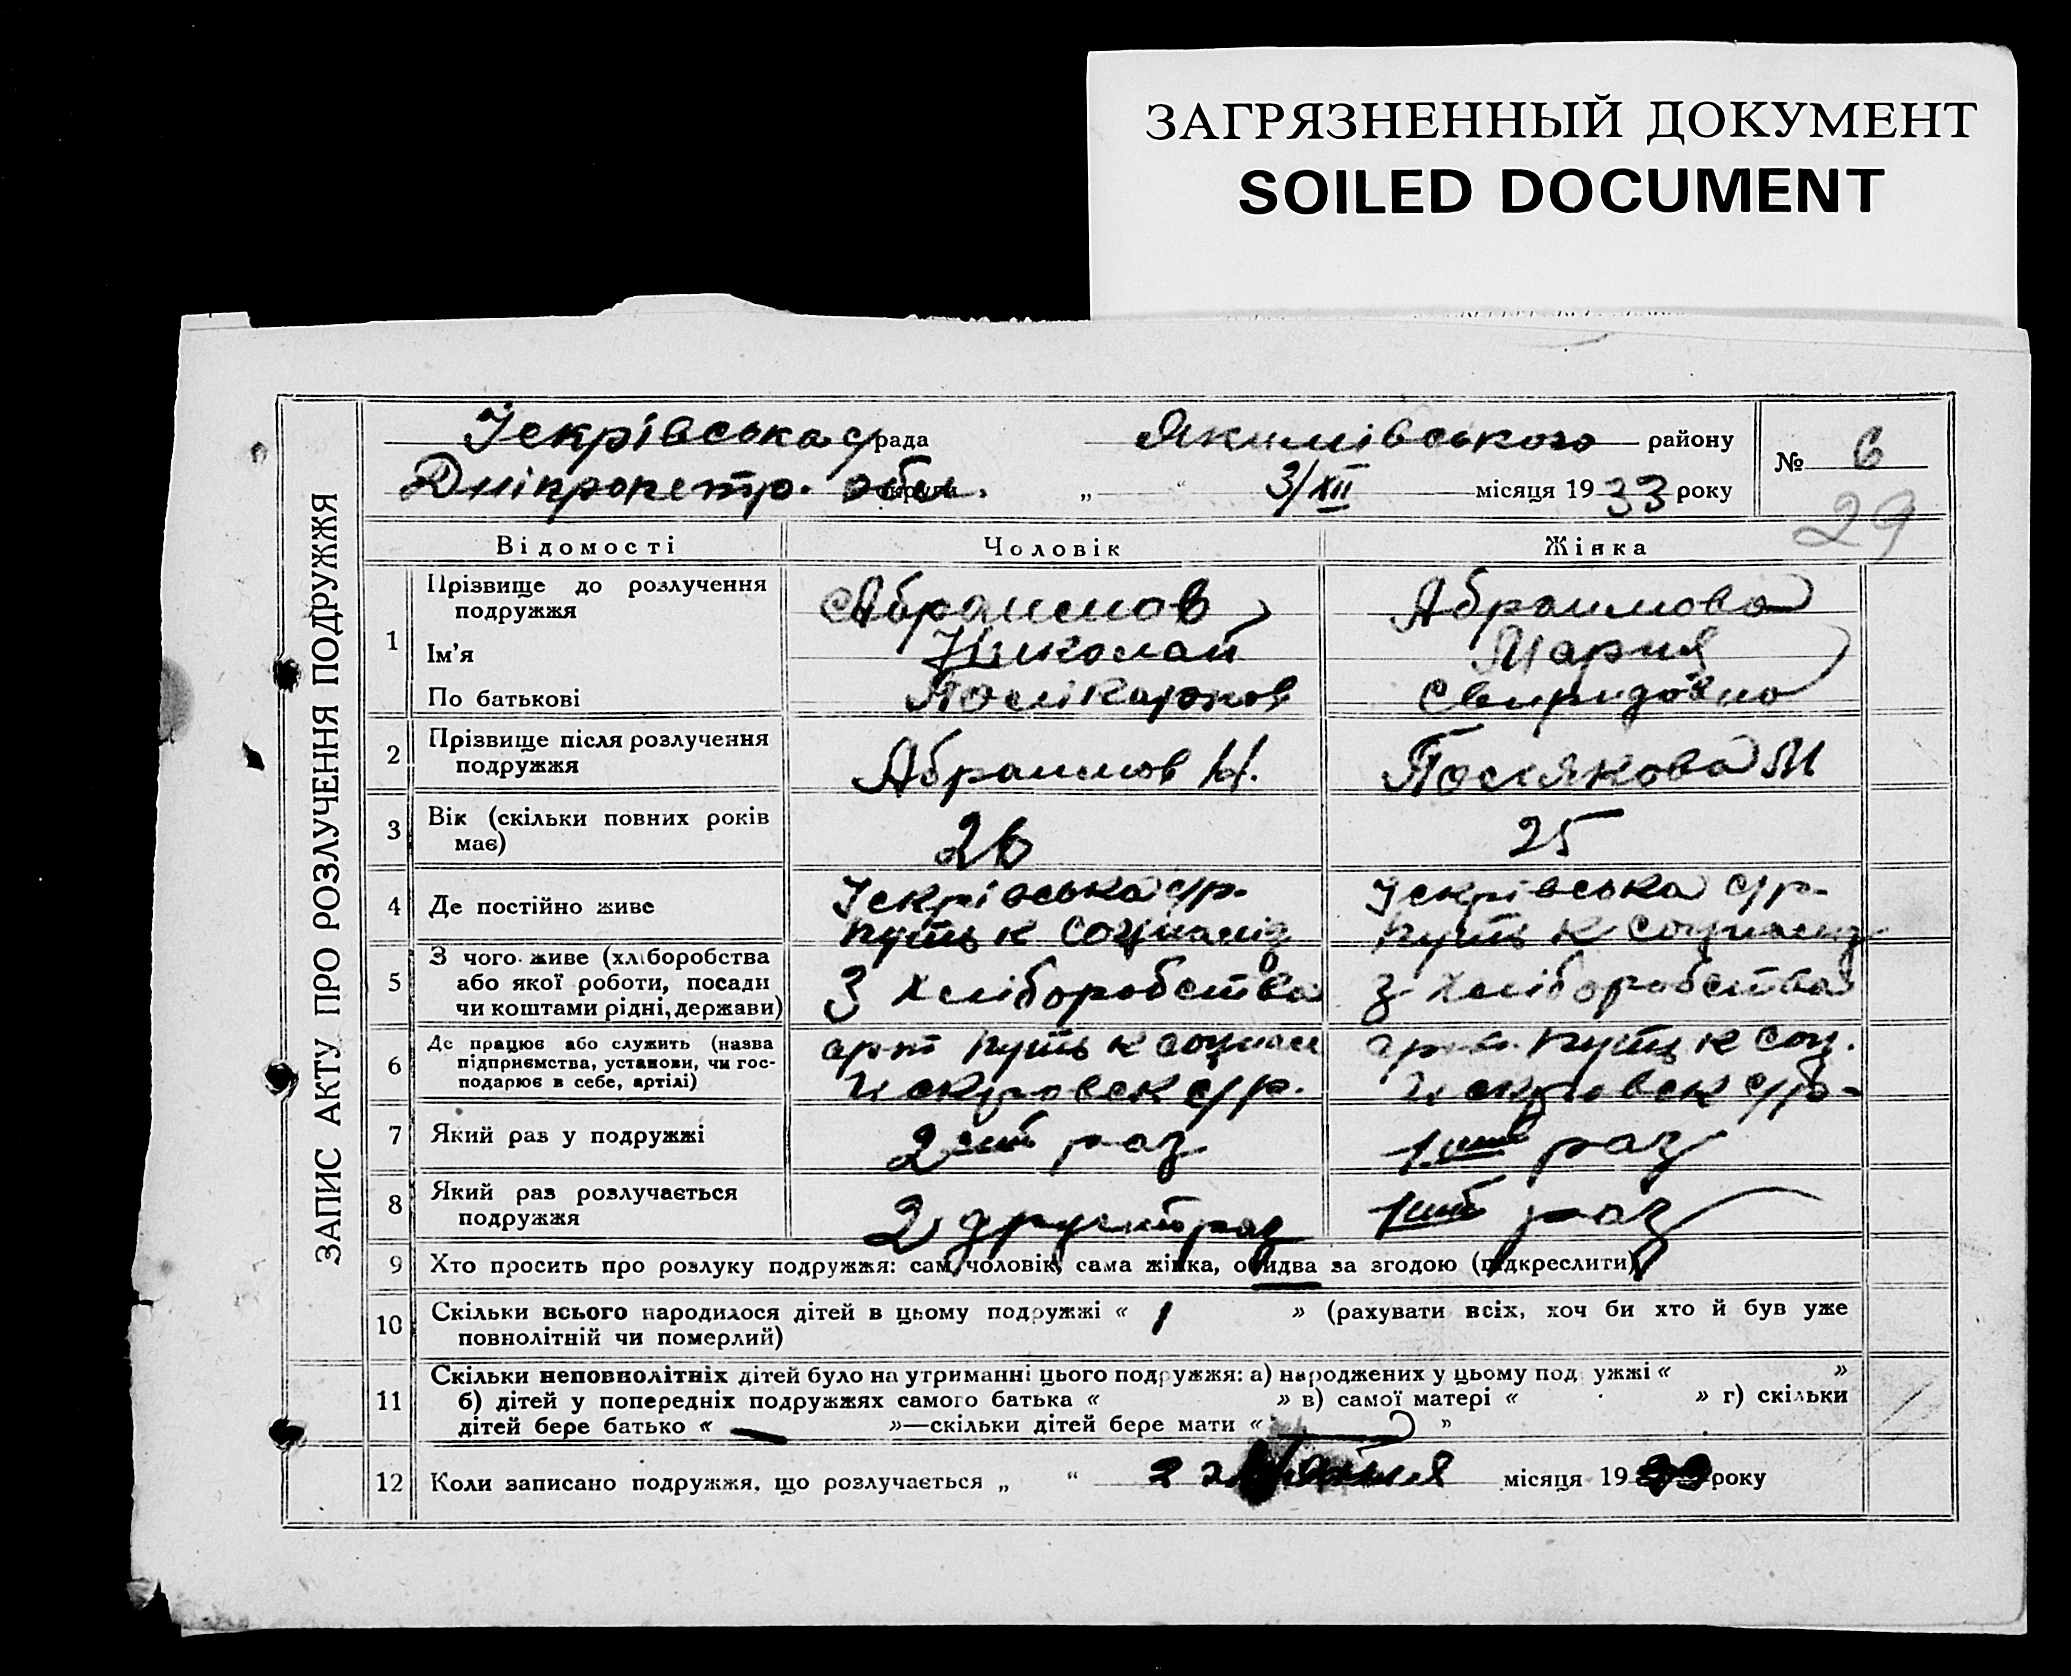 ЗАГРЯЗНЕННЫЙ ДОКУМЕНТ
SOILED DOCUMENT
ЗАПИС АКТУ ПРО РОЗЛУЧЕННЯ ПОДРУЖЖЯ
Іскрівська с/рада Якимівського району № 6
Дніпропетр. обл. „ “ 3/XII місяця 1933 року
29
Відомості Чоловік Жінка
1 Прізвище до розлучення Абраимов Абраимова
подружжя
Ім’я Николай Мария
По батькові Полікарпов Свиридовна
2 Прізвище після розлучення Абраимов Н. Полякова М
подружжя
3 Вік (скільки повних років 26 25
має)
4 Де постійно живе Іскрівська с/р. Іскрівська с/р.
Путь к социализ Путь к социализ
5 З чого живе (хліборобства З хліборобства З хліборобства
або якої роботи, посади
чи коштами рідні, держави)
6 Де працює або служить (назва арт Путь к социал арт. Путь к соц.
підприємства, установи, чи гос- Искровск с/р. Искровск с/р.
подарює в себе, артілі)
7 Який раз у подружжі 2 раз 1 раз
8 Який раз розлучається 2 другий раз 1 раз
подружжя
9 Хто просить про розлуку подружжя: сам чоловік, сама жінка, обидва за згодою (підкреслити)
10 Скільки всього народилося дітей в цьому подружжі « 1 » (рахувати всіх, хоч би хто й був уже
повнолітній чи померлий)
11 Скільки неповнолітніх дітей було на утриманні цього подружжя: а) народжених у цьому подружжі « »
б) дітей у попередніх подружжях самого батька « » в) самої матері « » г) скільки
дітей бере батько « — »—скільки дітей бере мати « — »
12 Коли записано подружжя, що розлучається „ “ 2 місяця 19 року